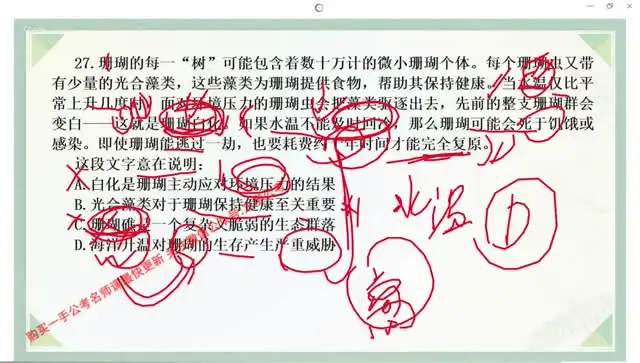 27. 珊瑚的每一“树”可能包含着数十万计的微小珊瑚个体。每个珊瑚虫又带
有少量的光合藻类，这些藻类为珊瑚提供食物，帮助其保持健康。当水温仅比平
常上升几度时，面对环境压力的珊瑚虫会把藻类驱逐出去，先前的整支珊瑚群会
变白——这就是珊瑚白化。如果水温不能及时回冷，那么珊瑚可能会死于饥饿或
感染。即使珊瑚能逃过一劫，也要耗费约十年时间才能完全复原。
这段文字意在说明：
A.白化是珊瑚主动应对环境压力的结果
B. 光合藻类对于珊瑚保持健康至关重要
C.珊瑚礁是一个复杂又脆弱的生态群落
D.海洋升温对珊瑚的生存产生严重威胁
水温
D
购买一手公考名师课最快更新